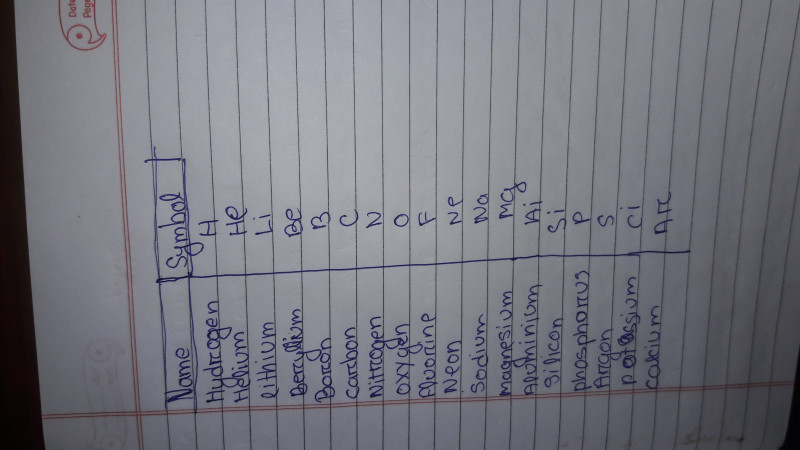 Date
Page
Name Symbol
Hydrogen H
Helium He
lithium Li
Beryllium Be
Boron B
Carbon C
Nitrogen N
Oxygen O
Fluorine F
Neon Ne
Sodium Na
Magnesium Mg
Aluminium Ai
Silicon Si
phosphorus P
Argon S
potassium Ci
calcium Arc